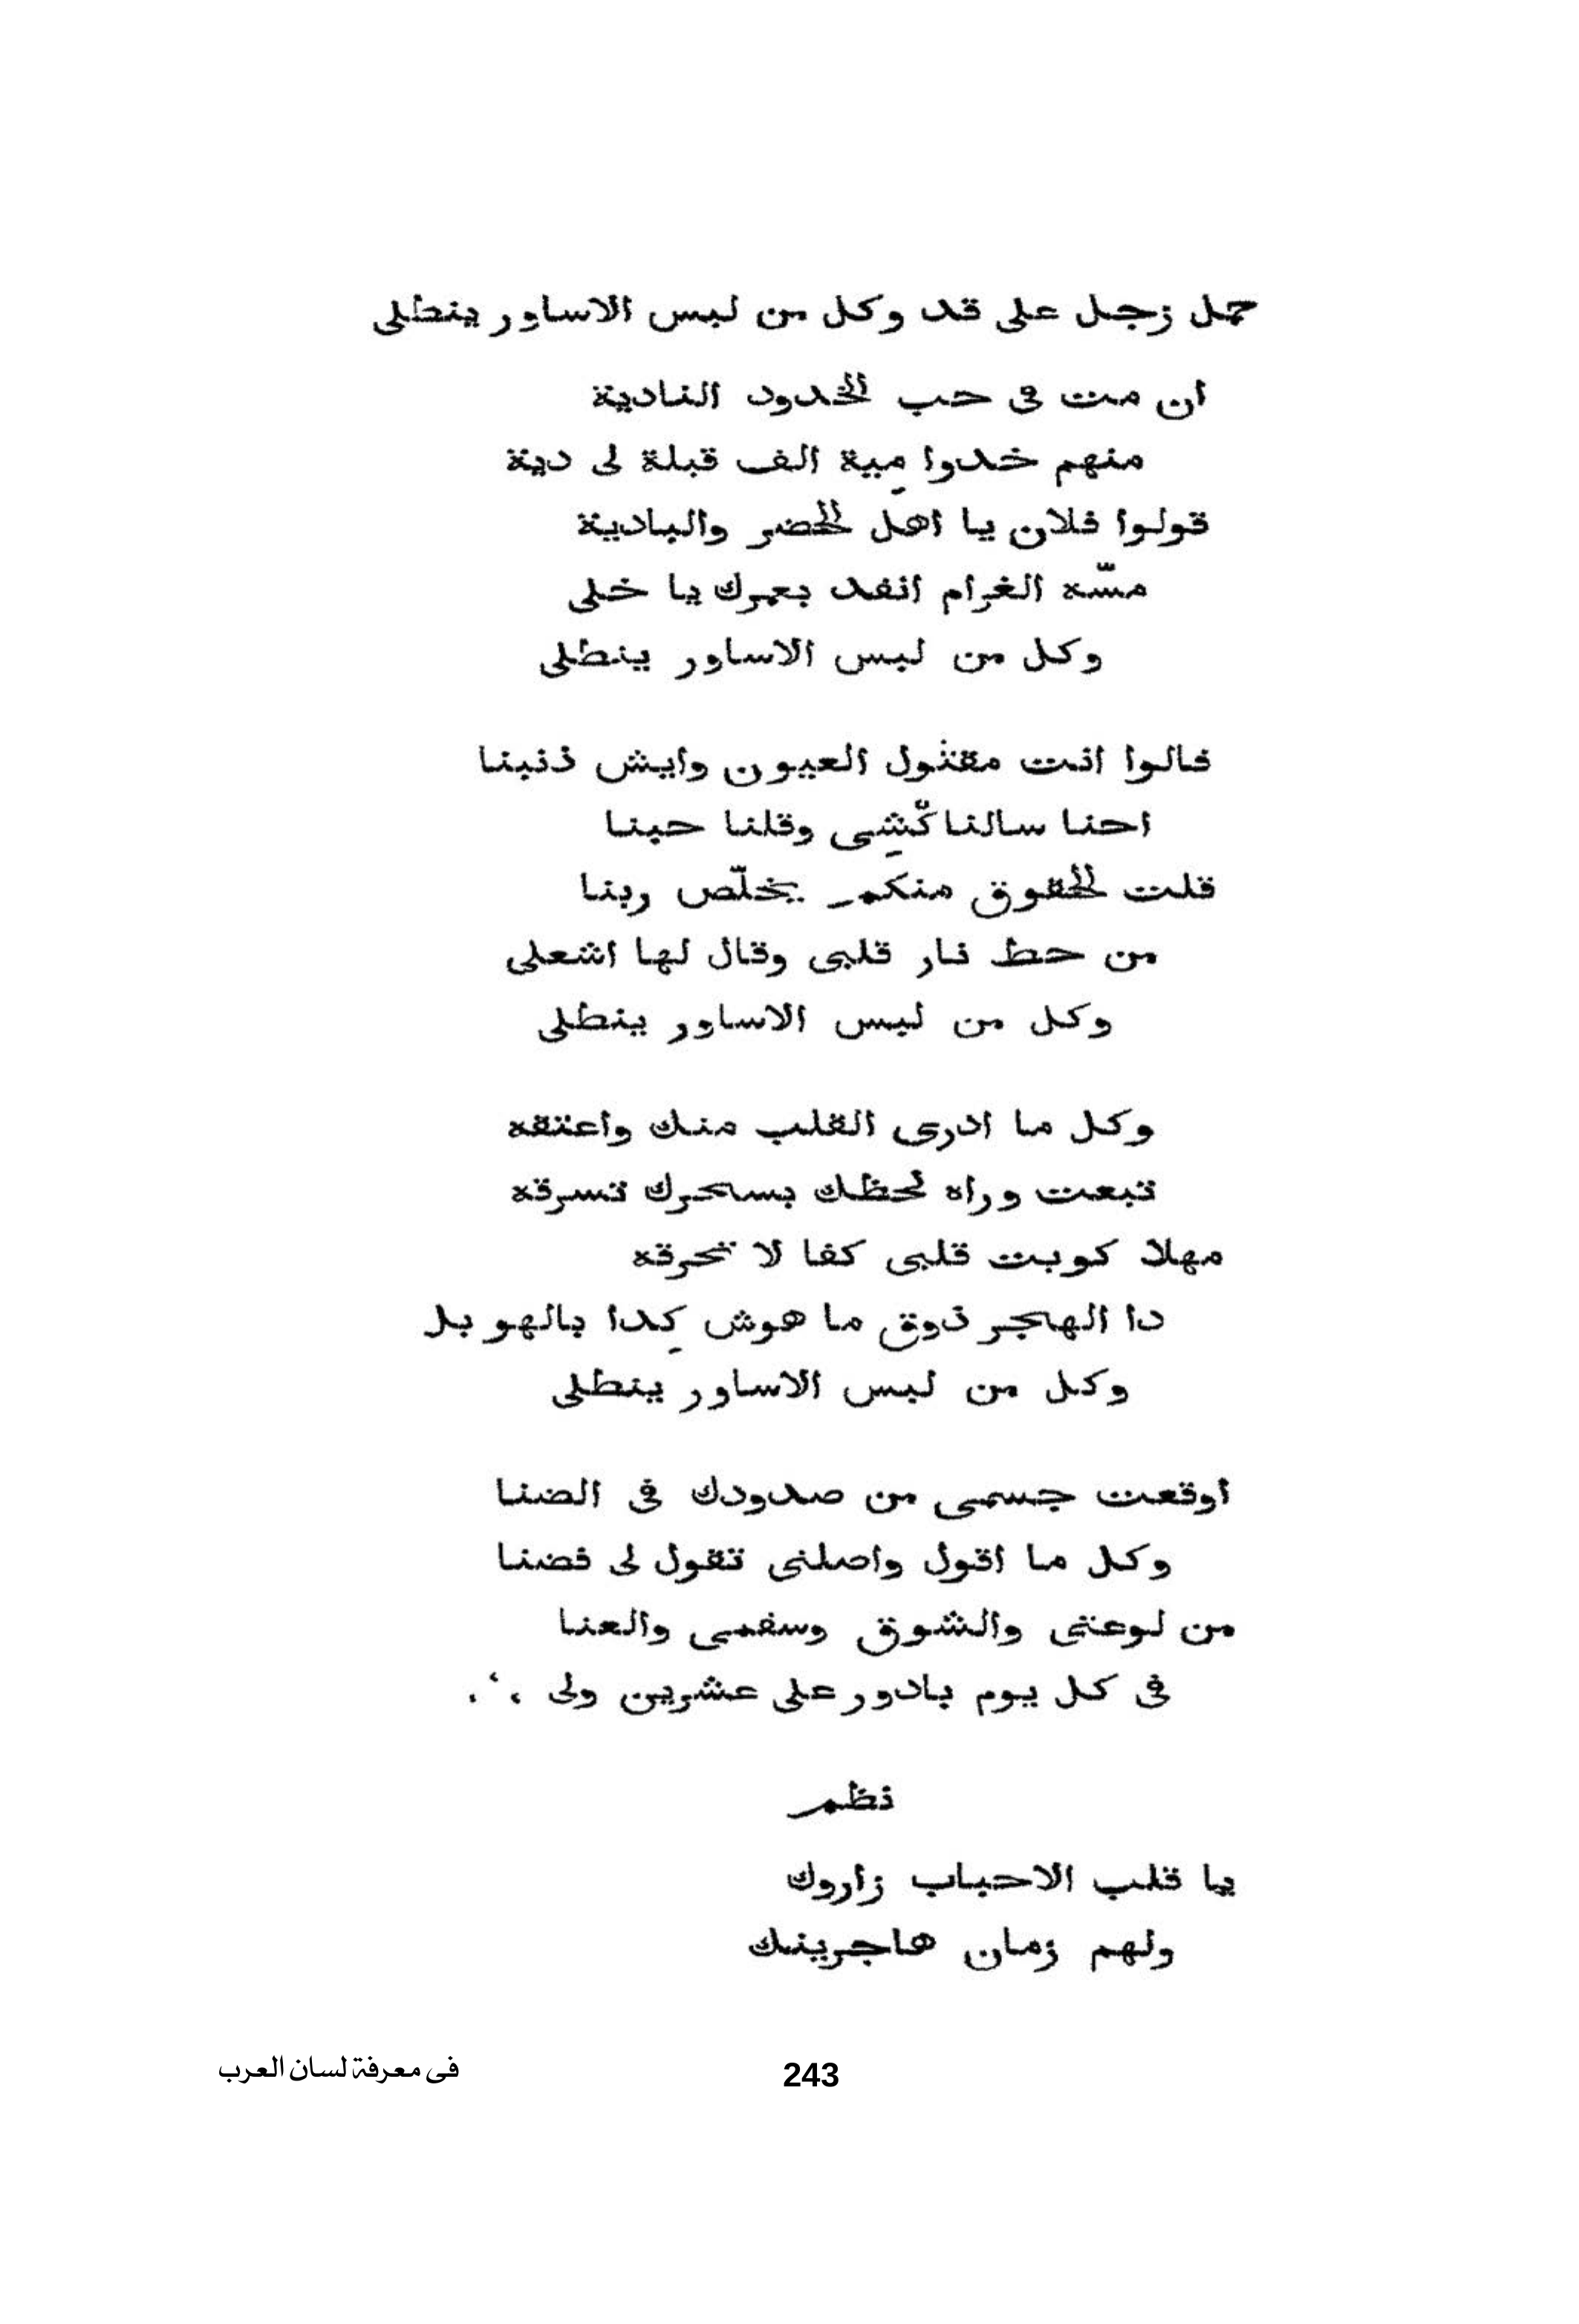 حمل زجل على قد وكل من لبس الاساور ينطلى
ان مت فى حب الخدود النادية
منهم خدوا مِية الف قبلة لى دية
قولوا فلان يا اهل الحضر والبادية
مسّه الغرام انفد بعمرك يا خلى
وكل من لبس الاساور ينطلى
قالوا انت مقتول العيون وايش ذنبنا
احنا سالناك شِى وقلنا حبنا
قلت الحقوق منكم يخلّص ربنا
من حط نار قلبى وقال لها اشعلى
وكل من لبس الاساور ينطلى
وكل ما ادرى القلب منك واعتقه
تبعت وراه لحظك بسحرك تسرقه
مهلا كويت قلبى كفا لا تحرقه
دا الهجر ذوق ما هوش كِدا بالهويد
وكل من لبس الاساور ينطلى
أوقعت جسمى من صدودك فى الضنا
وكل ما اقول واصلنى تقول لى فضنا
من لوعتى والشوق وسقمى والعنا
فى كل يوم بادور على عشرين ولى
نظم
يا قلب الاحباب زاروك
ولهم زمان هاجرينك
فى معرفة لسان العرب
243